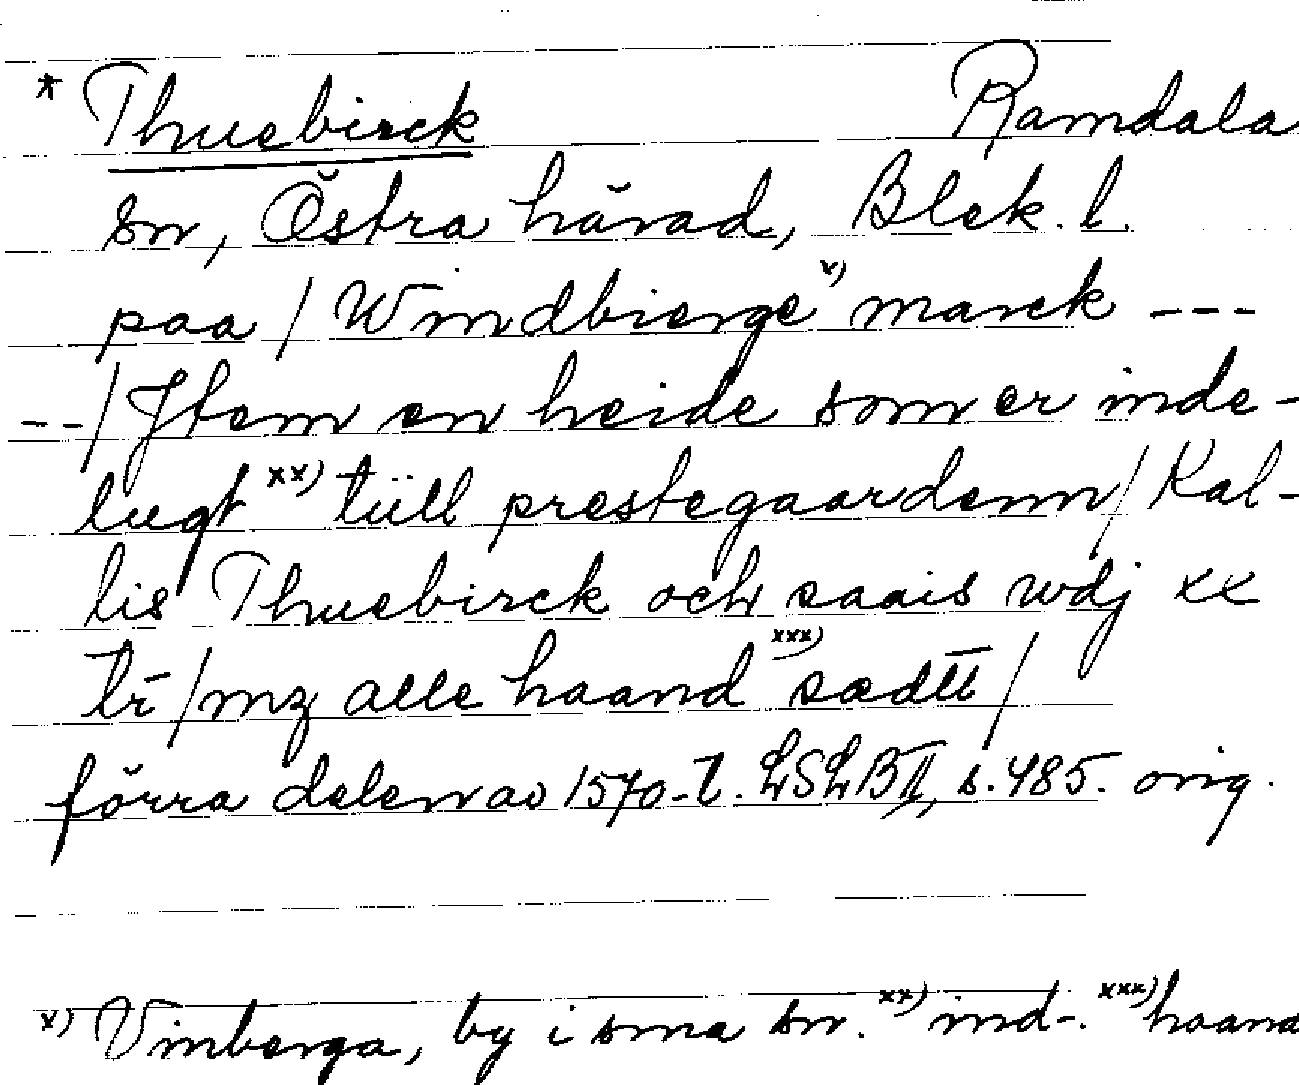 * Thuebirck Ramdala
sn, Östra härad, Blek. l.
paa / Windbierge x) marck ---
--/ Jtem en heide som er inde-
lugt xx) tiill prestegaardenn / Kal-
lis Thuebirck och saais wdj xx
tr̄ / mz alle haand xxx) sædtt /
förra delen av 1570-t. LSLB II, s. 485. orig.
x) Vinberga, by i sma sn. xx) ind-. xxx) haand